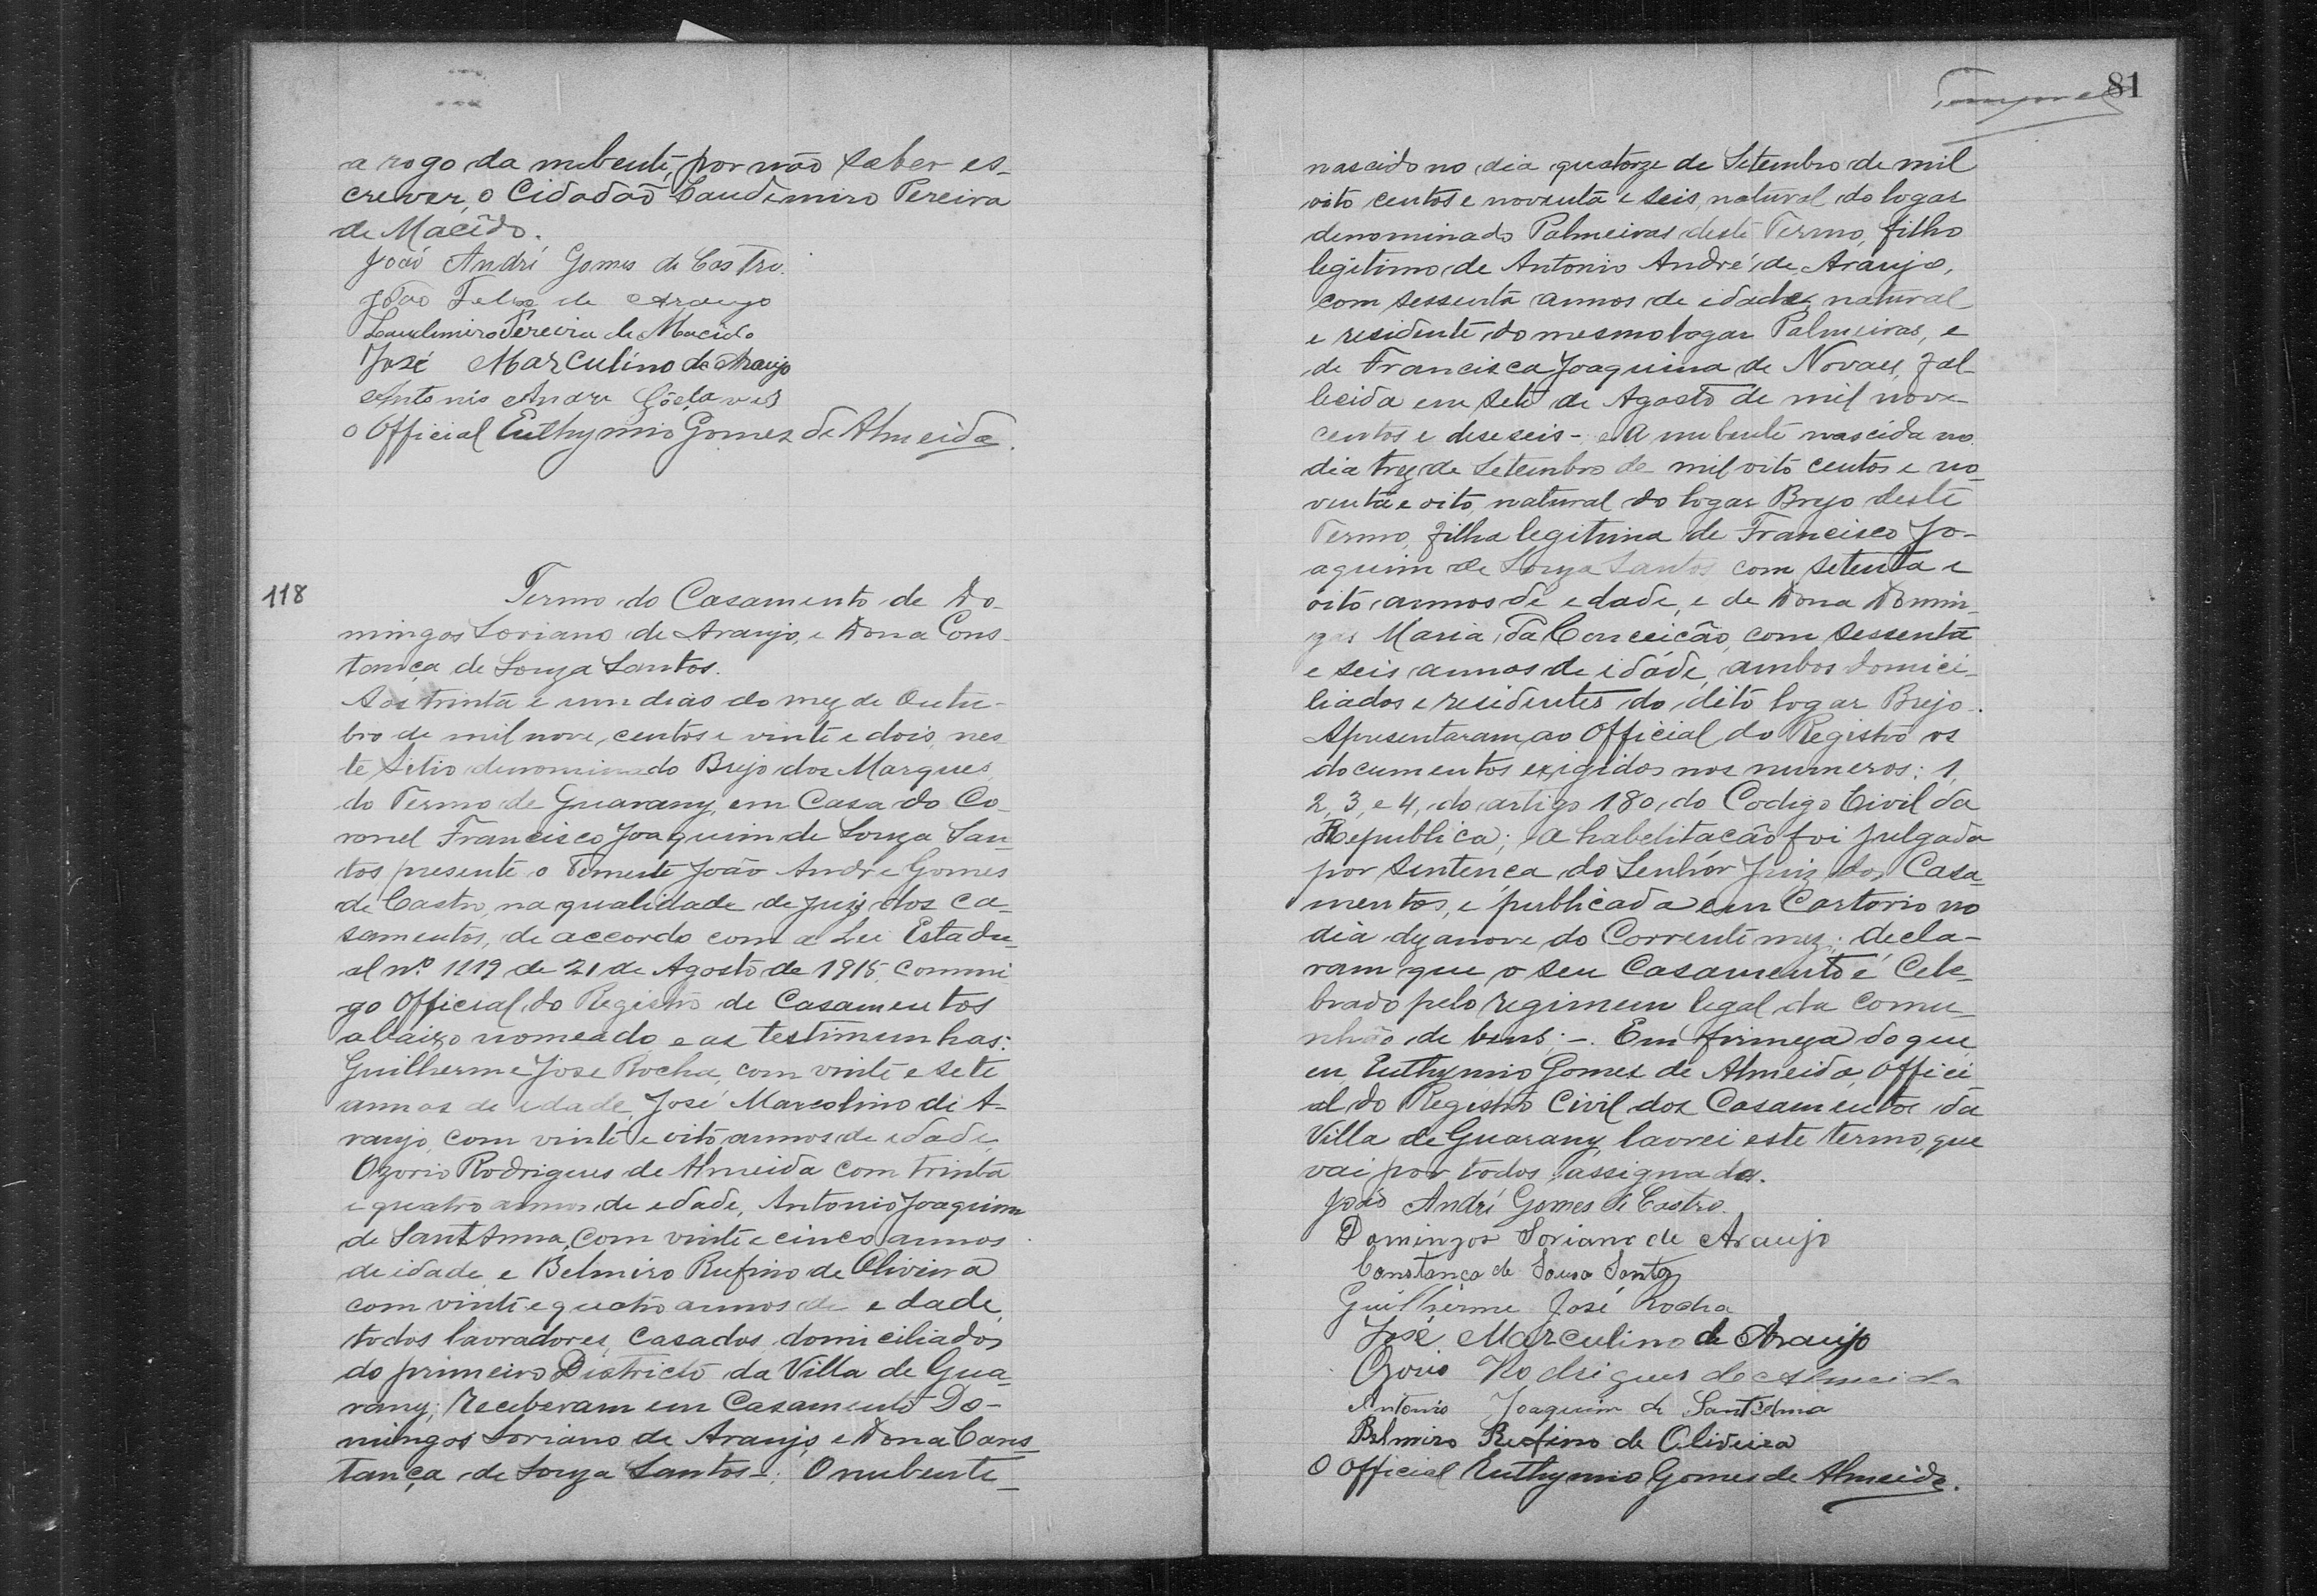 a rogo da nubente, por não saber es-
crever, o Cidadão Laudemiro Pereira
de Macêdo.
João André Gomes de Castro.
João Felix de Araujo
Laudimiro Pereira de Macido
José Marculino de Araujo
Antonio Andre
O Official Euthymio Gomes de Almeida.
118
Termo do Casamento de Do-
mingos Soriano de Araujo, e Dona Cons-
tança de Souza Santos.
Aos trinta e um dias do mez de Outu-
bro de mil nove, centos e vinte e dois, nes-
te Sitio denominado Brejo dos Marques,
do Termo de Guarany, em Casa do Co-
ronel Francisco Joaquim de Souza San-
tos presente o Tenente João Andre Gomes
de Castro, na qualidade de Juiz dos Ca-
samentos, de accordo com a Lei Estadu-
al nº 1119 de 21 de Agosto de 1915, commi-
go Official do Registro de Casamentos
abaixo nomeado e as testimunhas:
Guilherme Jose Rocha, com vinte e sete
annos de idade, José Marcolino de A-
raujo, com vinte e oito annos de edade,
Ozorio Rodrigues de Almeida com trinta
e quatro annos de edade, Antonio Joaquim
de Sant Anna, com vinte e cinco annos
de idade, e Belmiro Rufino de Oliveira
com vinte e quatro annos de edade,
todos lavradores, Casados, domiciliados
do primeiro Districto da Villa de Gua-
rany; Receberam em Casamento Do-
mingos Soriano de Araujo, e Dona Cons-
tança de Souza Santos-. O nubente-
81
nascido no dia quatorze de Setembro de mil
oito centos e noventa e seis, natural do logar
denominado Palmeiras deste Termo, filho
legitimo de Antonio André de Araujo,
com sessenta annos de idade, natural
e residente do mesmo logar Palmeiras, e
de Francisca Joaquina de Novaes, fal-
lecida em sete de Agosto de mil nove-
centos e deseseis - e A nubente nascida no
dia trez de Setembro de mil oito centos e no-
venta e oito, natural do logar Brejo deste
Termo, filha legitima de Francisco Jo-
aquim de Souza Santos com setenta e
oito annos de edade, e de Dona Domin-
gas Maria da Conceicão, com sessenta
e seis annos de idade, ambos domici-
liados e residentes do dito logar Brejo-.
Apresentaram ao Official do Registro os
documentos exigidos nos numeros: 1,
2, 3, e 4, do artigo 180, do Codigo Civil da
Republica; a habelitacão foi julgada
por Sentença do Senhór Juiz dos Casa-
mentos, e publicada em Cartorio no
dia dezanove do Corrente mez; decla-
ram que o seu Casamento é Cele-
brado pelo regimem legal da comu-
nhão de bens; -. Em firmeza do que
eu, Euthymio Gomes de Almeida, Offici-
al do Registro Civil dos Casamentos da
Villa de Guarany, lavrei este termo, que
vai por todos assignados.
João André Gomes de Castro.
Domingos Soriano de Araujo
Constança de Sousa Santos
Guilherme José Rocha
José Marculino de Araujo
Ozorio Rodrigues de Almeida
Antonio Joaquim de Sant'Anna
Belmiro Rufino de Oliveira
O Official Euthymio Gomes de Almeida.